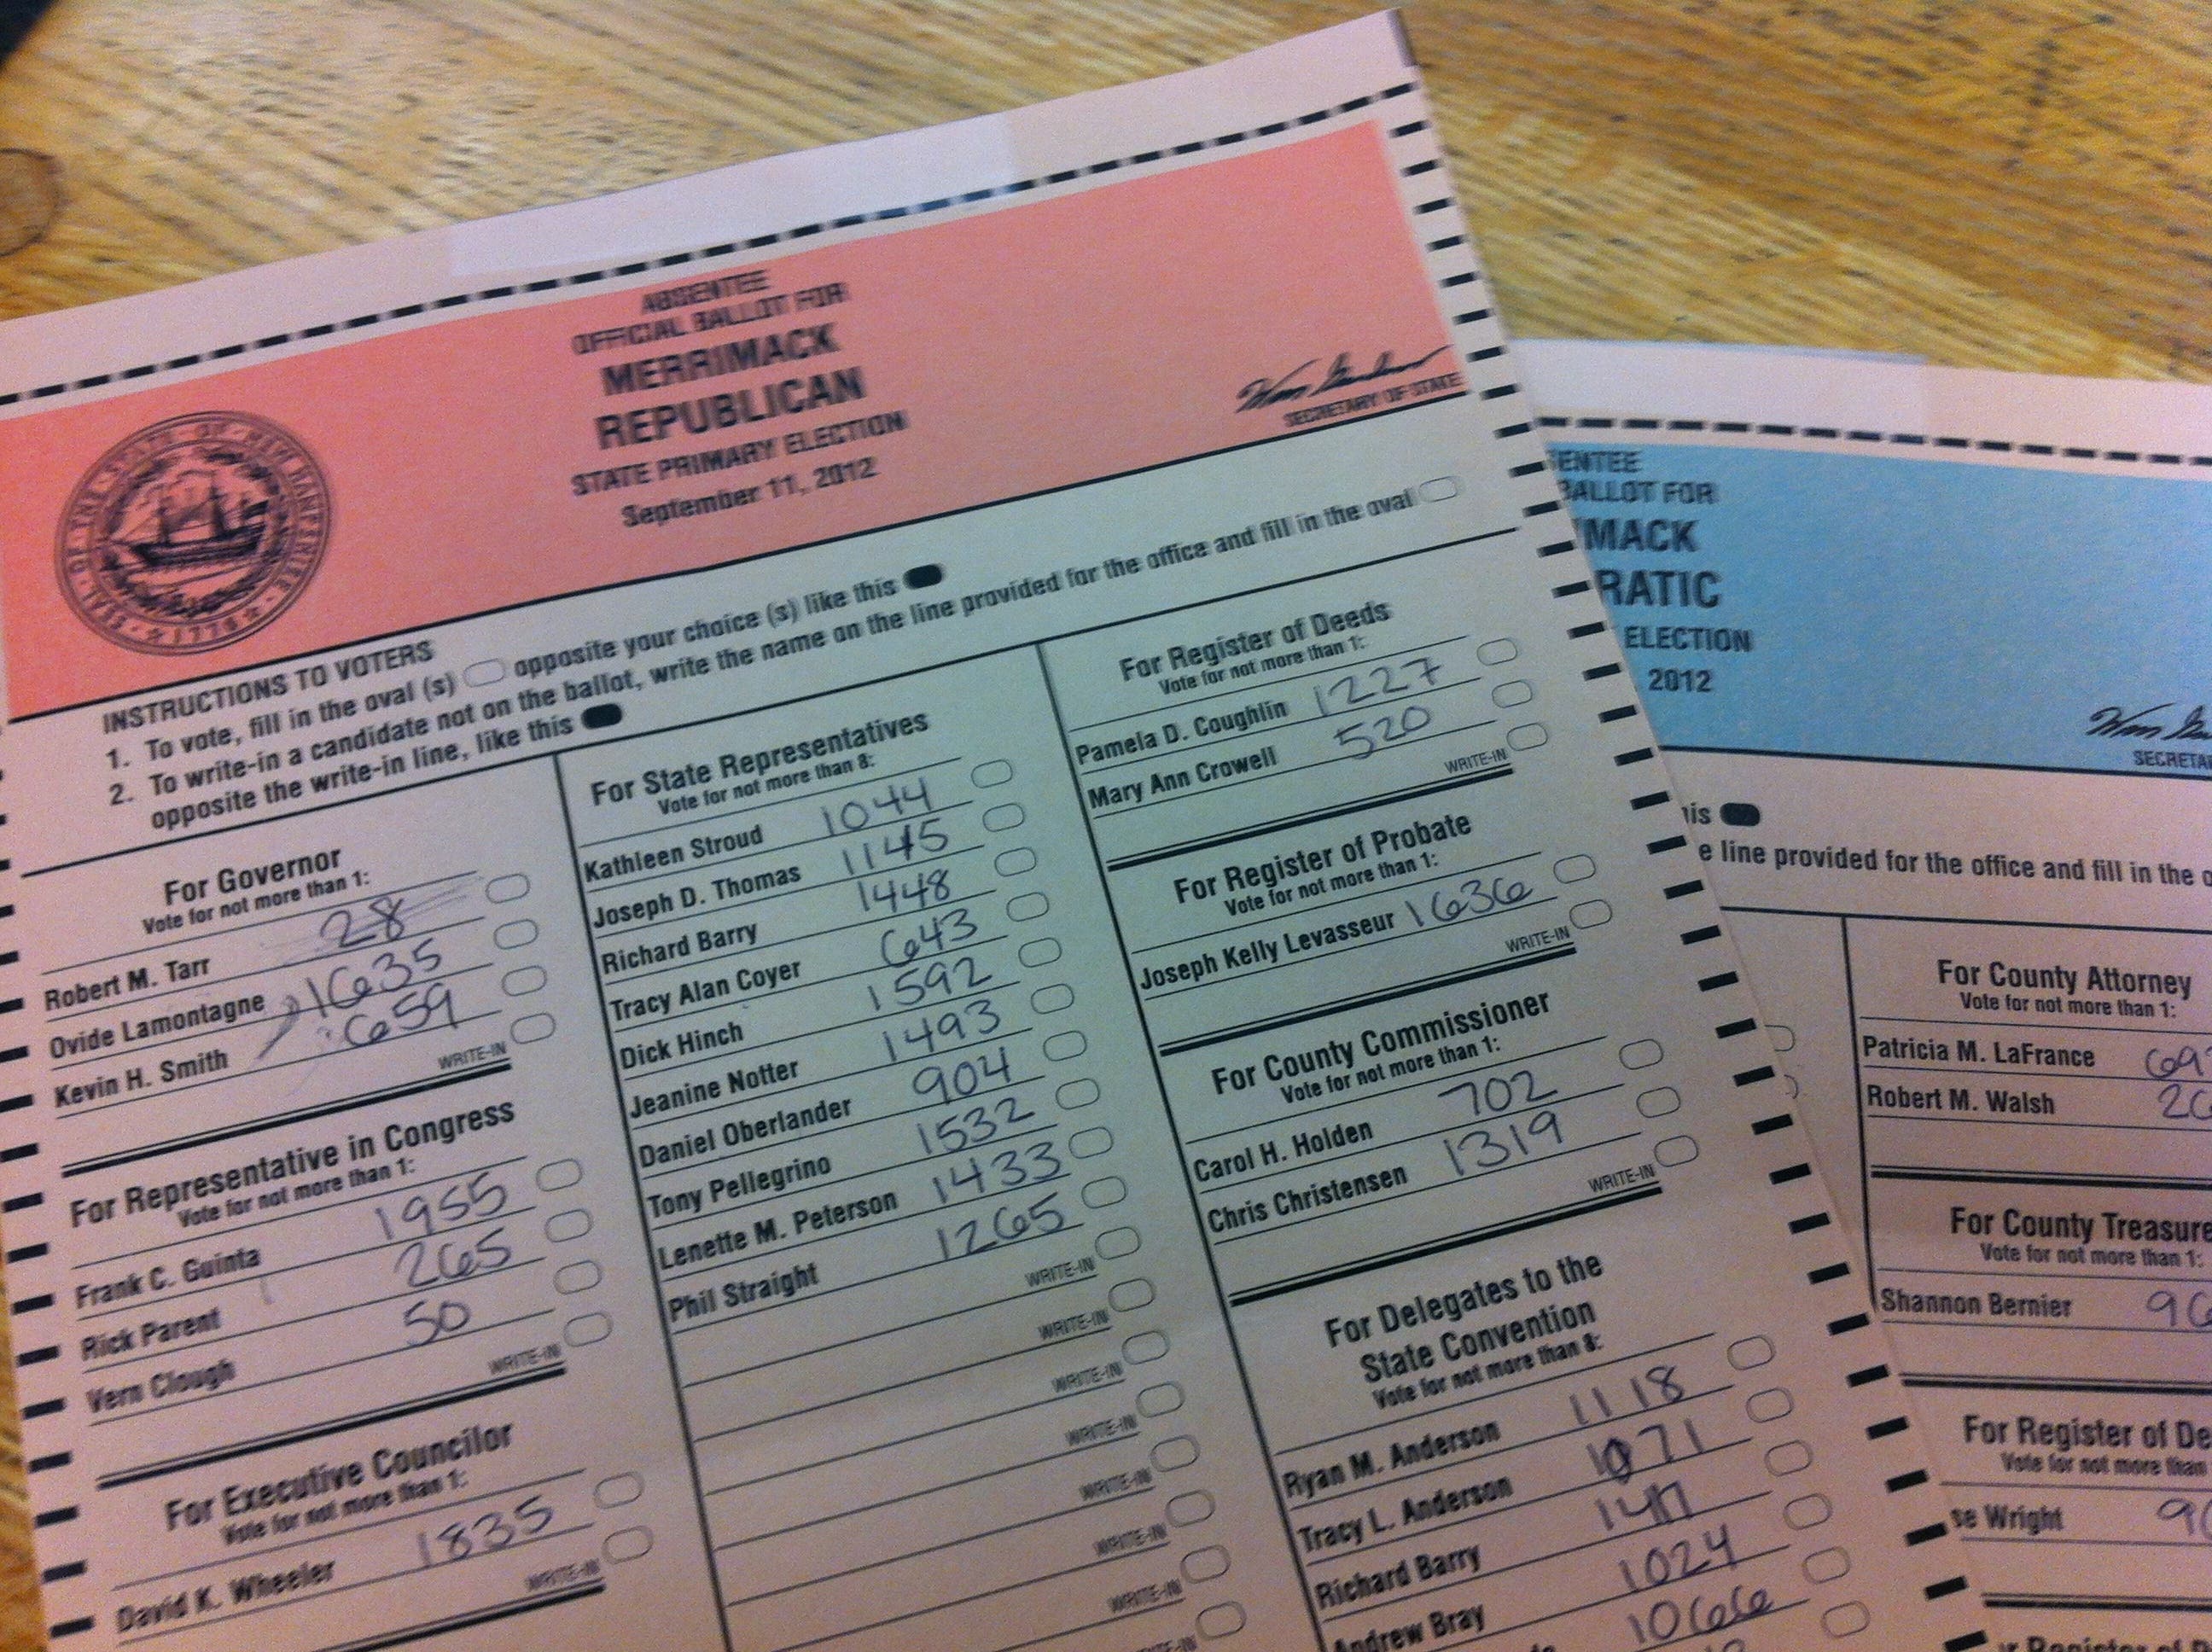 ABSENTEE
OFFICIAL BALLOT FOR
MERRIMACK
REPUBLICAN
STATE PRIMARY ELECTION
September 11, 2012
SECRETARY OF STATE
SEAL · OF · THE · STATE · OF · NEW HAMPSHIRE · 1776
INSTRUCTIONS TO VOTERS
1. To vote, fill in the oval (s) opposite your choice (s) like this
2. To write-in a candidate not on the ballot, write the name on the line provided for the office and fill in the oval
opposite the write-in line, like this
For Governor
Vote for not more than 1:
Robert M. Tarr 28
Ovide Lamontagne 1635
Kevin H. Smith 659
WRITE-IN
For Representative in Congress
Vote for not more than 1:
Frank C. Guinta 1955
Rick Parent 265
Vern Clough 50
WRITE-IN
For Executive Councilor
Vote for not more than 1:
David K. Wheeler 1835
WRITE-IN
For State Representatives
Vote for not more than 8:
Kathleen Stroud 1044
Joseph D. Thomas 1145
Richard Barry 1448
Tracy Alan Coyer 643
Dick Hinch 1592
Jeanine Notter 1493
Daniel Oberlander 904
Tony Pellegrino 1532
Lenette M. Peterson 1433
Phil Straight 1265
WRITE-IN
WRITE-IN
WRITE-IN
WRITE-IN
WRITE-IN
WRITE-IN
WRITE-IN
WRITE-IN
For Register of Deeds
Vote for not more than 1:
Pamela D. Coughlin 1227
Mary Ann Crowell 520
WRITE-IN
For Register of Probate
Vote for not more than 1:
Joseph Kelly Levasseur 1636
WRITE-IN
For County Commissioner
Vote for not more than 1:
Carol H. Holden 702
Chris Christensen 1319
WRITE-IN
For Delegates to the
State Convention
Vote for not more than 8:
Ryan M. Anderson 1118
Tracy L. Anderson 1071
Richard Barry
Andrew Bray 1024
1066
ENTEE
BALLOT FOR
MACK
RATIC
ELECTION
2012
SECRETA
is
e line provided for the office and fill in the o
For County Attorney
Vote for not more than 1:
Patricia M. LaFrance 69
Robert M. Walsh 20
For County Treasure
Vote for not more than 1:
Shannon Bernier 96
For Register of De
Vote for not more than
se Wright 9